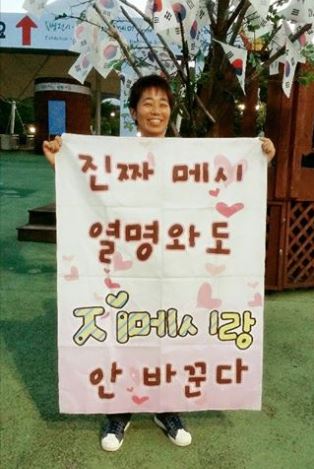 진짜 메시
열명와도
지메시랑
안 바꾼다